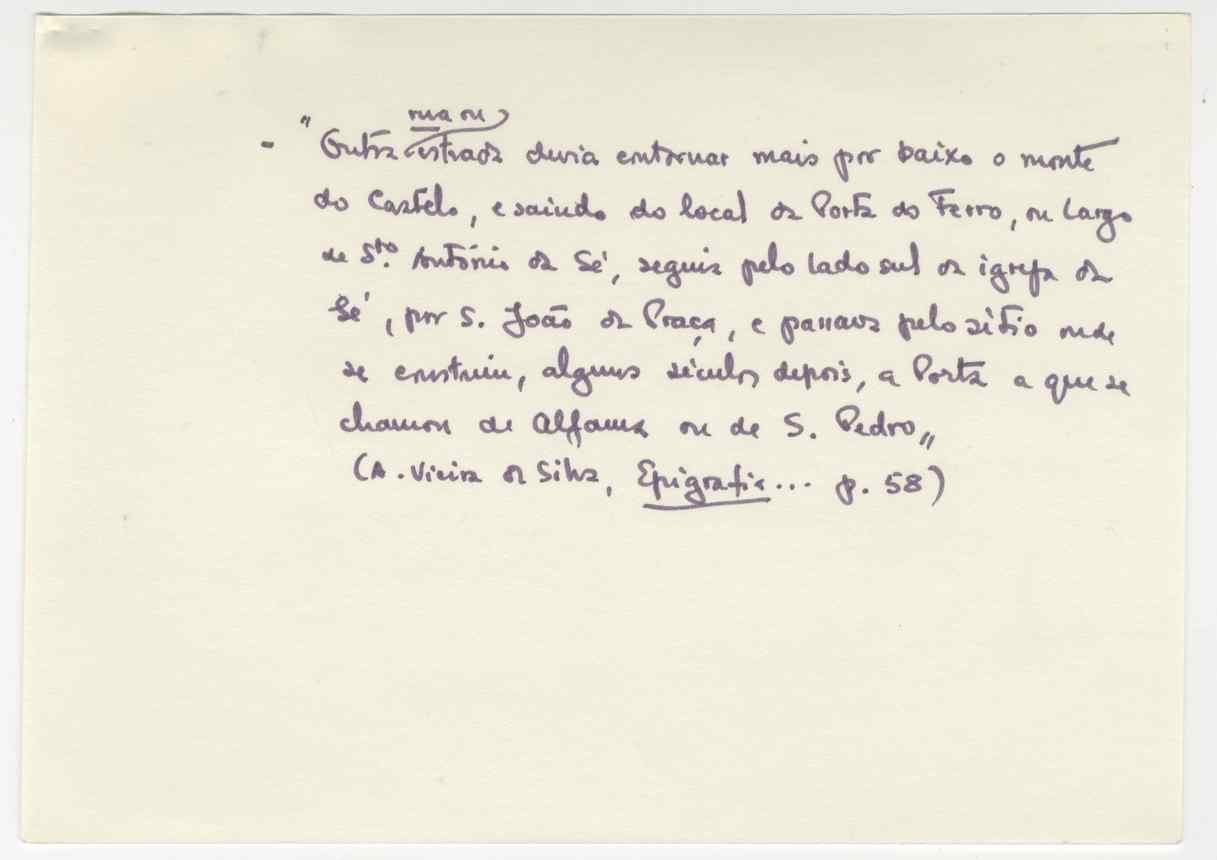 rua ou
- "Outra estrada devia contornar mais por baixo o monte
do Castelo, e saindo do local da Porta do Ferro, ou Largo
de Sto. António da Sé, seguia pelo lado sul da igreja da
Sé, por S. João da Praça, e passava pelo sítio onde
se construiu, alguns séculos depois, a Porta a que se
chamou de Alfama ou de S. Pedro„
(A. Vieira da Silva, Epigrafia... p. 58)